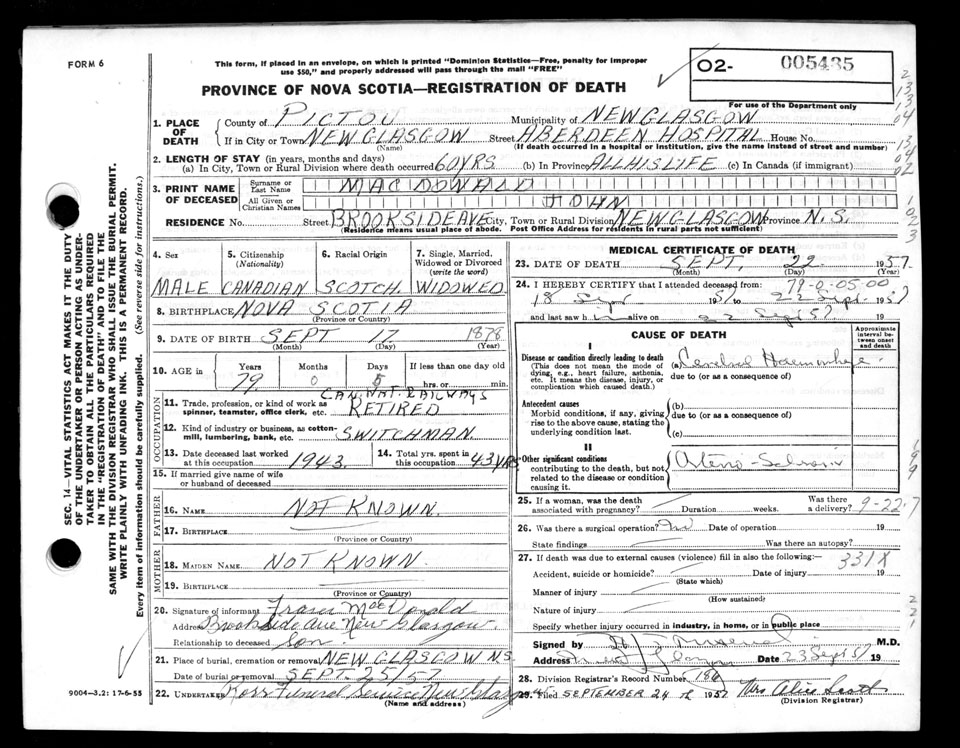 FORM 6
This form, if placed in an envelope, on which is printed "Dominion Statistics—Free, penalty for improper
use $50," and properly addressed will pass through the mail "FREE"
O2- 005435
PROVINCE OF NOVA SCOTIA—REGISTRATION OF DEATH
For use of the Department only
1. PLACE OF DEATH
County of PICTOU Municipality of NEW GLASGOW
If in City or Town NEW GLASGOW Street ABERDEEN HOSPITAL House No.
(Name) (If death occurred in a hospital or institution, give the name instead of street and number)
2. LENGTH OF STAY (in years, months and days)
(a) In City, Town or Rural Division where death occurred 60 YRS (b) In Province ALL HIS LIFE (c) In Canada (if immigrant)
3. PRINT NAME OF DECEASED
Surname or Last Name MACDONALD
All Given or Christian Names JOHN
RESIDENCE No. Street BROOKSIDE AVE City, Town or Rural Division NEW GLASGOW Province N.S.
(Residence means usual place of abode. Post Office Address for residents in rural parts not sufficient)
SEC. 14—VITAL STATISTICS ACT MAKES IT THE DUTY
OF THE UNDERTAKER OR PERSON ACTING AS UNDER-
TAKER TO OBTAIN ALL THE PARTICULARS REQUIRED
IN THE "REGISTRATION OF DEATH" AND TO FILE THE
SAME WITH THE DIVISION REGISTRAR WHO SHALL ISSUE THE BURIAL PERMIT.
WRITE PLAINLY WITH UNFADING INK. THIS IS A PERMANENT RECORD.
Every item of information should be carefully supplied. (See reverse side for instructions.)
4. Sex MALE
5. Citizenship (Nationality) CANADIAN
6. Racial Origin SCOTCH
7. Single, Married, Widowed or Divorced (write the word) WIDOWED
8. BIRTHPLACE NOVA SCOTIA
(Province or Country)
9. DATE OF BIRTH SEPT 17 1878
(Month) (Day) (Year)
10. AGE IN Years Months Days If less than one day old
79 0 5 hrs. or min.
OCCUPATION
CAN. NAT. RAILWAYS
11. Trade, profession, or kind of work as
spinner, teamster, office clerk, etc. RETIRED
12. Kind of industry or business, as cotton-
mill, lumbering, bank, etc. SWITCHMAN
13. Date deceased last worked
at this occupation 1943
14. Total yrs. spent in
this occupation 43 YRS
15. If married give name of wife
or husband of deceased
FATHER
16. Name NOT KNOWN.
17. Birthplace
(Province or Country)
MOTHER
18. Maiden Name NOT KNOWN
19. Birthplace
(Province or Country)
20. Signature of informant Fraser MacDonald
Address Brookside Ave New Glasgow.
Relationship to deceased Son.
21. Place of burial, cremation or removal NEW GLASGOW N.S.
Date of burial or removal SEPT. 25/57
22. Undertaker Ross Funeral Service New Glasgow
(Name and address)
9004-3.2: 17-6-55
MEDICAL CERTIFICATE OF DEATH
23. DATE OF DEATH SEPT. 22 1957
(Month) (Day) (Year)
24. I HEREBY CERTIFY that I attended deceased from: 79-0-05-00
18 Sept 1957 to 22 Sept. 1957
and last saw h im alive on 22 Sept 57
CAUSE OF DEATH
Approximate interval between onset and death
I
Disease or condition directly leading to death
(This does not mean the mode of
dying, e.g., heart failure, asthenia,
etc. It means the disease, injury, or
complication which caused death.)
(a) Cerebral Haemorrhage
due to (or as a consequence of)
Antecedent causes
Morbid conditions, if any, giving
rise to the above cause, stating the
underlying condition last.
(b)
due to (or as a consequence of)
(c)
II
Other significant conditions
contributing to the death, but not
related to the disease or condition
causing it.
Arterio-Sclerosis
25. If a woman, was the death
associated with pregnancy? Duration weeks. Was there a delivery?
9-22-7
26. Was there a surgical operation? No Date of operation 19
State findings Was there an autopsy?
27. If death was due to external causes (violence) fill in also the following:—
331X
Accident, suicide or homicide? Date of injury 19
(State which)
Manner of injury
(How sustained)
Nature of injury
Specify whether injury occurred in industry, in home, or in public place
Signed by M.D.
Address New Glasgow Date 23 Sept 57 19
28. Division Registrar's Record Number 186
29. Filed SEPTEMBER 24 th 1957 Mrs Alice Scott
(Division Registrar)